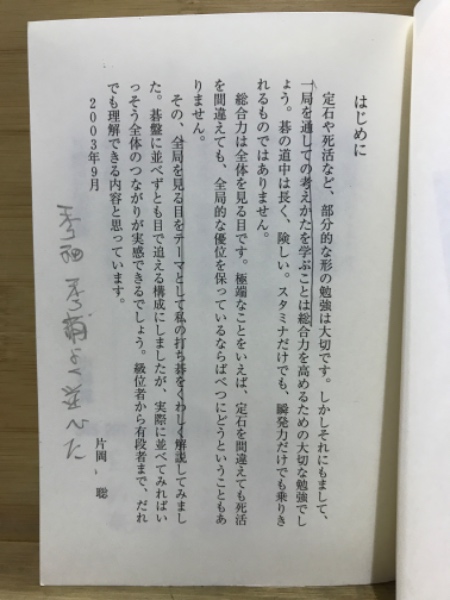 はじめに
定石や死活など、部分的な形の勉強は大切です。しかしそれにもまして、
一局を通しての考えかたを学ぶことは総合力を高めるための大切な勉強でし
ょう。碁の道中は長く、険しい。スタミナだけでも、瞬発力だけでも乗りき
れるものではありません。
総合力は全体を見る目です。極端なことをいえば、定石を間違えても死活
を間違えても、全局的な優位を保っているならばべつにどうということもあ
りません。
その、全局を見る目をテーマとして私の打ち碁をくわしく解説してみまし
た。碁盤に並べずとも目で追える構成にしましたが、実際に並べてみればい
っそう全体のつながりが実感できるでしょう。級位者から有段者まで、だれ
でも理解できる内容と思っています。
2003年9月
片岡 聡